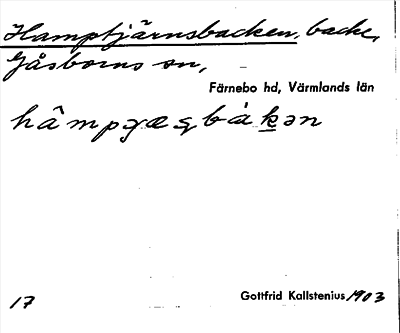 Hamptjärnsbacken, backe,
Gåsborns sn,
Färnebo hd, Värmlands län
hâmpɟæꞩbàkən
17
Gottfrid Kallstenius 1903